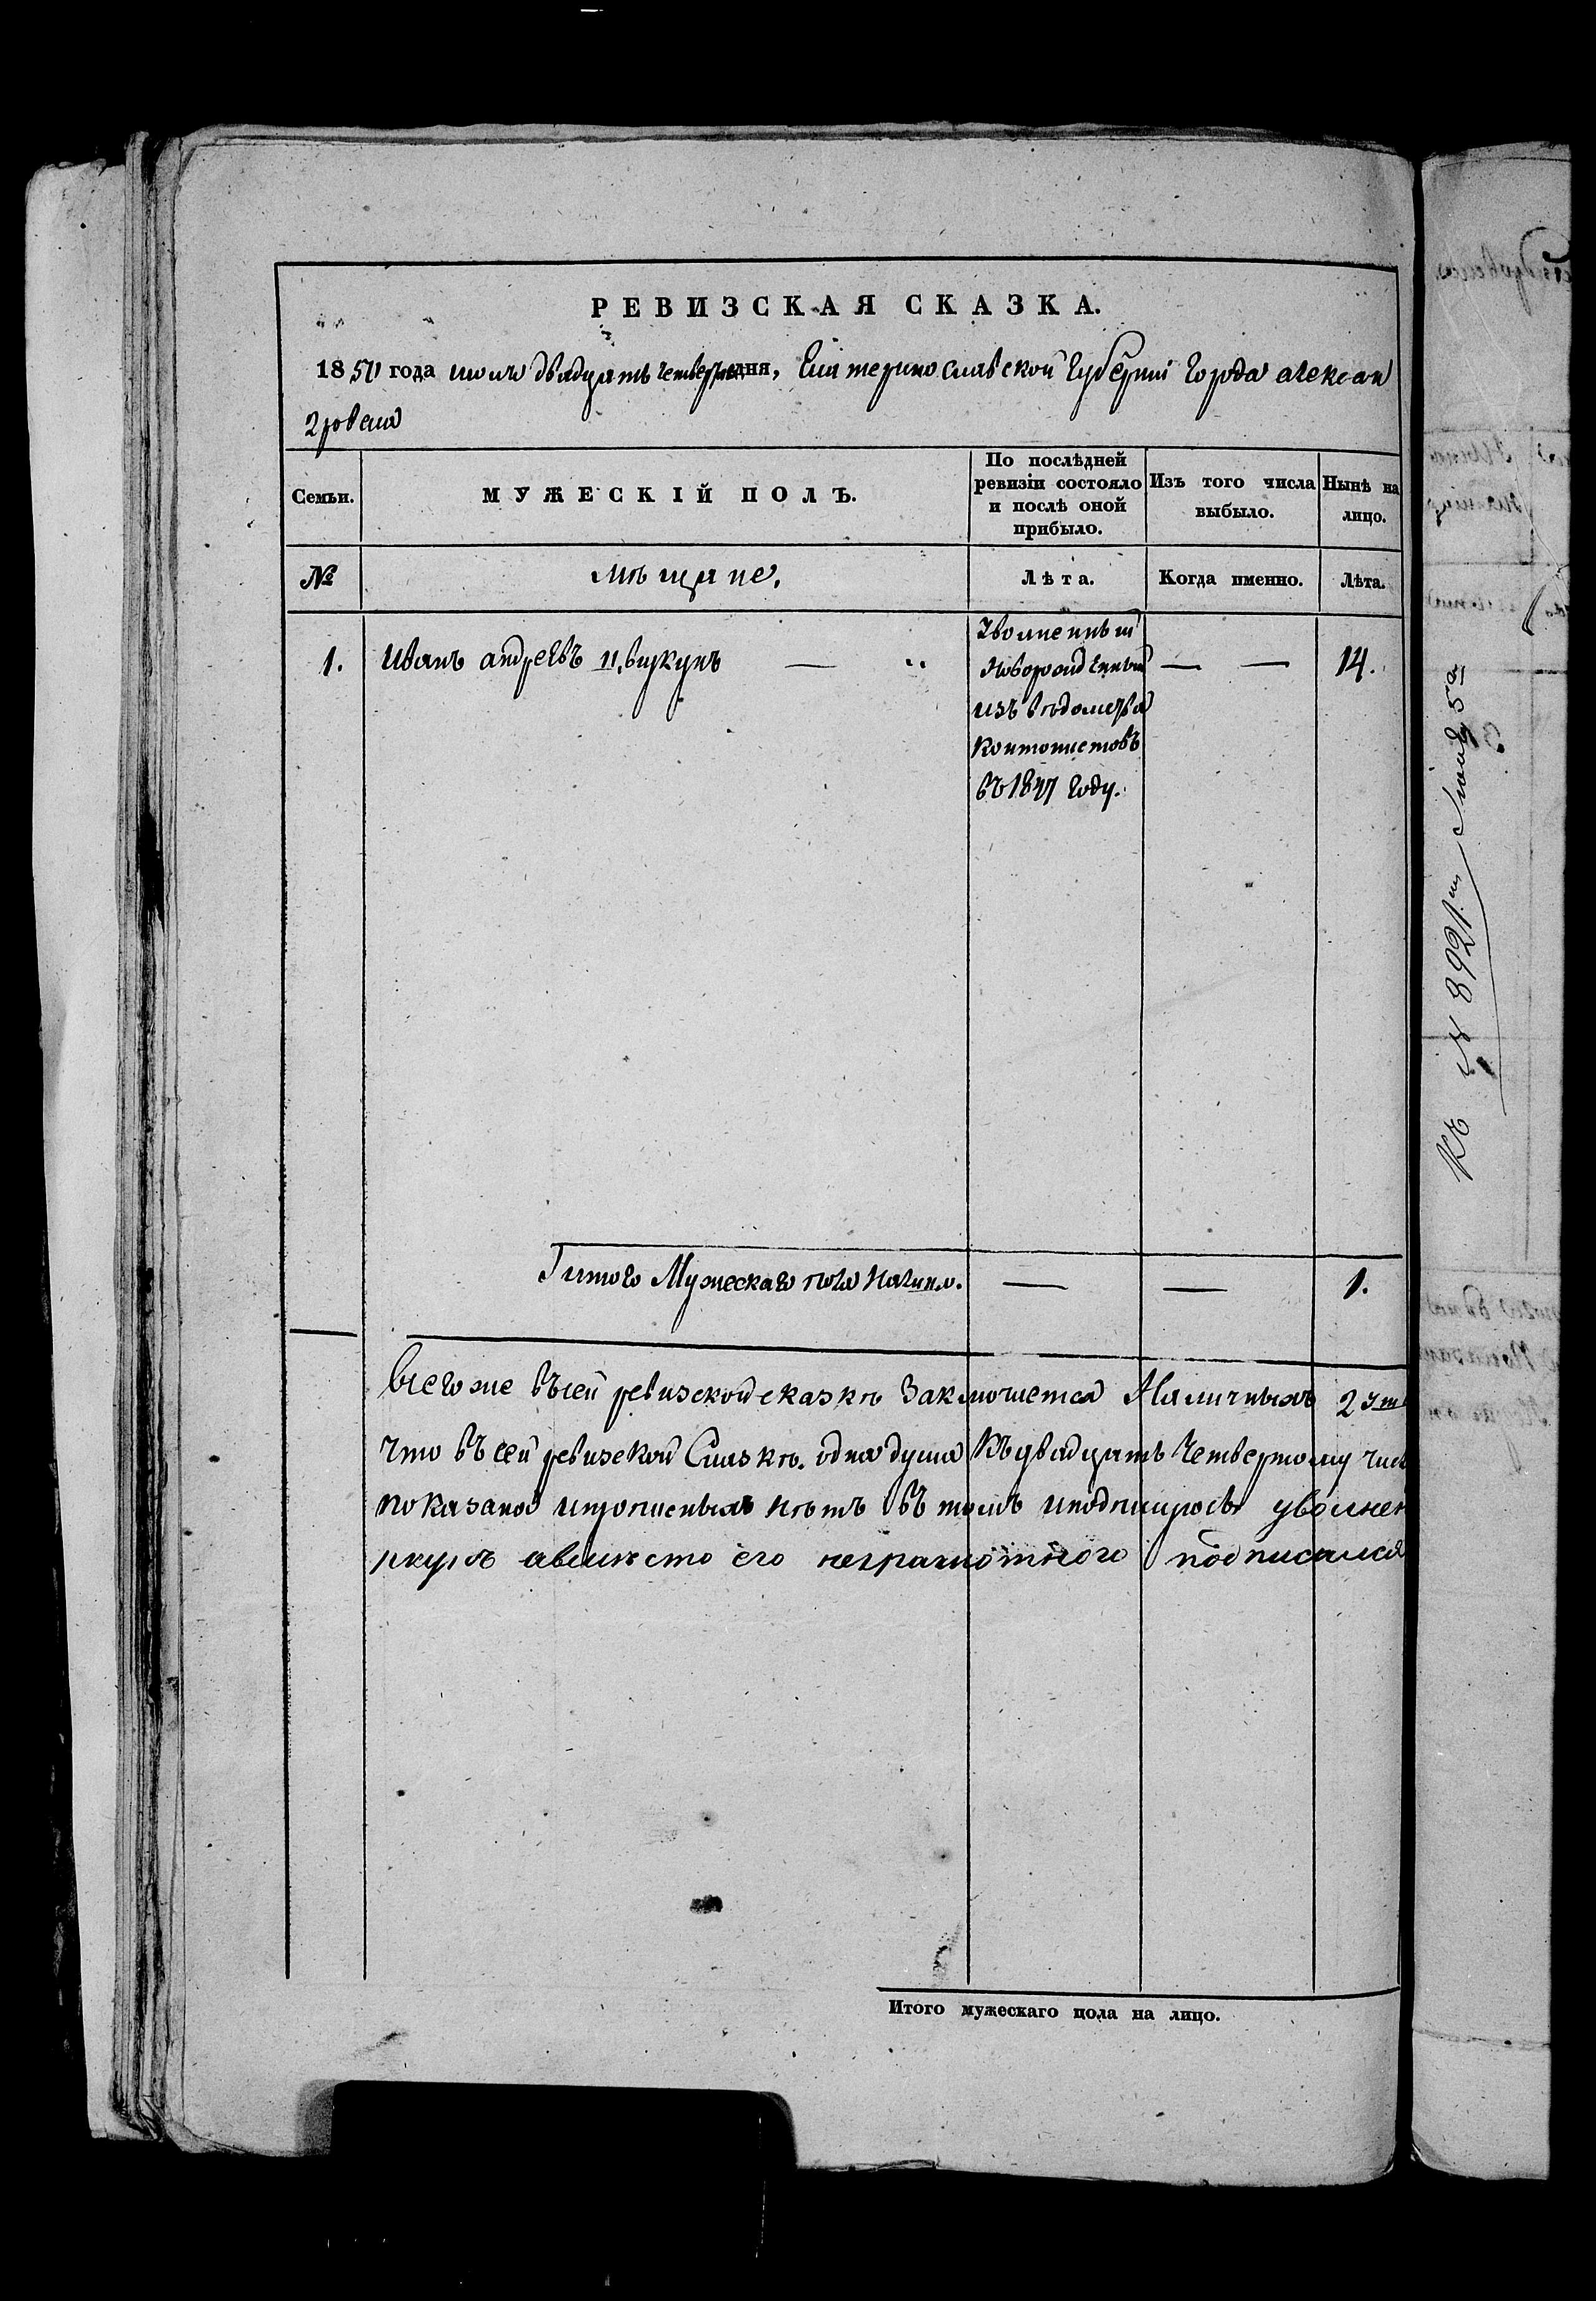 РЕВИЗСКАЯ СКАЗКА.
1850 года июля двадцать четвертаго дня, Екатеринославской Губерніи Города Алексан
дровска
Семьи.
МУЖЕСКІЙ ПОЛЪ.
По послѣдней ревизіи состояло и послѣ оной прибыло.
Изъ того числа выбыло.
Нынѣ на лицо.
№
Мѣщане.
Лѣта.
Когда именно.
Лѣта.
1.
Иванъ Андреевъ
Уволненный
Новорожденный
изъ вѣдомства
Контонистовъ
въ 1847 году.
14.
Итого Мужескаго пола налицо.
1.
Всего же въ сей ревизской сказкѣ Заключается Наличныхъ
что въ сей ревизской Сказкѣ одна душа Къ двадцать Четвертому
показана и прописныхъ нѣтъ въ томъ и подпишуюсь уволнен
ркунъ авмѣсто его неграмотного подписался
Итого мужескаго пола на лицо.
Къ № 8921